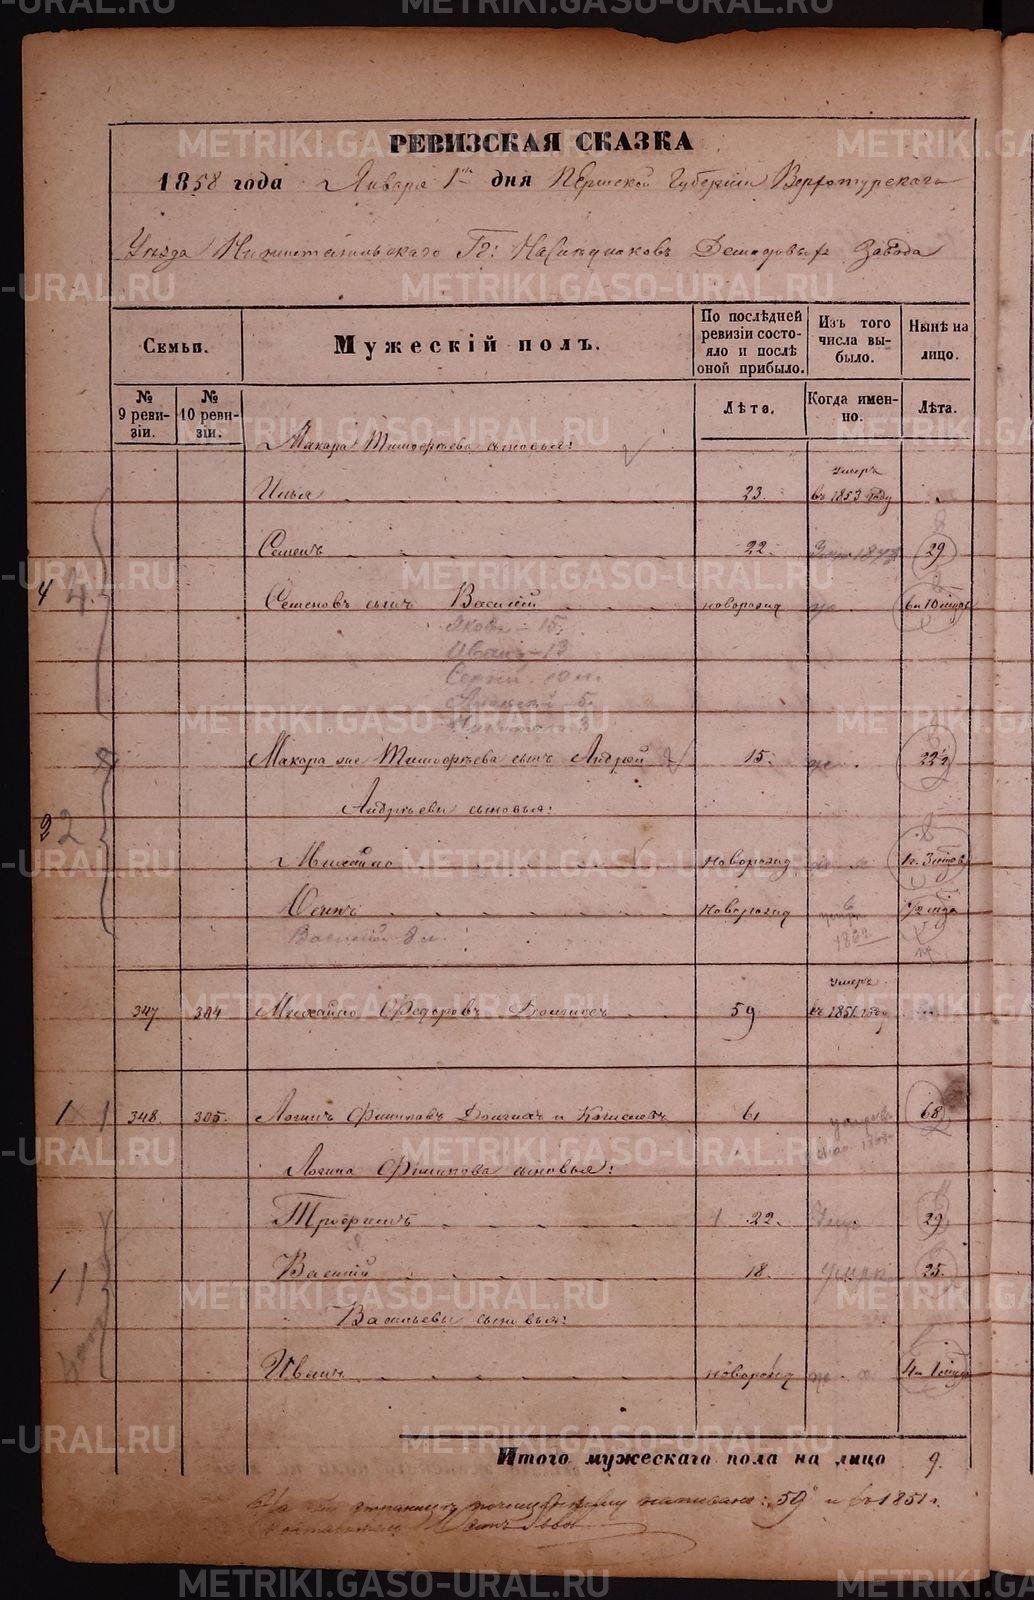 РЕВИЗСКАЯ СКАЗКА
1858 года Января 1го дня Пермской Губернии Верхотурскаго
Уезда Нижнетагильскаго Гг: Наследниковъ Демидовыхъ Завода
Семьи.
Мужескій полъ.
По послѣдней ревизіи состояло и послѣ оной прибыло.
Изъ того числа выбыло.
Нынѣ на лицо.
№ 9 ревизіи.
№ 10 ревизіи.
Лѣта.
Когда именно.
Лѣта.
Макара Тимофѣева сыновья:
Илья 23. умеръ въ 1853 году
Семенъ 22. 29
4 4. Семеновъ сынъ Василій новорожд 6 10 мѣсц
Яковъ - 15.
Иванъ - 13
Сергій 10
5.
Никита 3
Макара же Тимофѣева сынъ Андрей 15. 22½
Андрѣевы сыновья:
2 2
Михайло новорожд 1 г. 3 мѣсц
Осипъ новорожд 1862 ½ мѣц
Василій 8 л.
347 304 Михайло Федоровъ Долгихъ 59 умеръ въ 1851 году
1 1 348. 305. Логинъ Филиповъ Долгихъ и Кошелевъ 61 68
Логина Филипова сыновья:
Трофимъ 22. 29
1 1 Василій 18. умеръ 25.
Васильевы сыновья:
Иванъ новорожд 4 1 мѣсц
Итого мужескаго пола на лицо 9.
На сей страницѣ написано: 59 и въ 1851 г.
METRIKI.GASO-URAL.RU